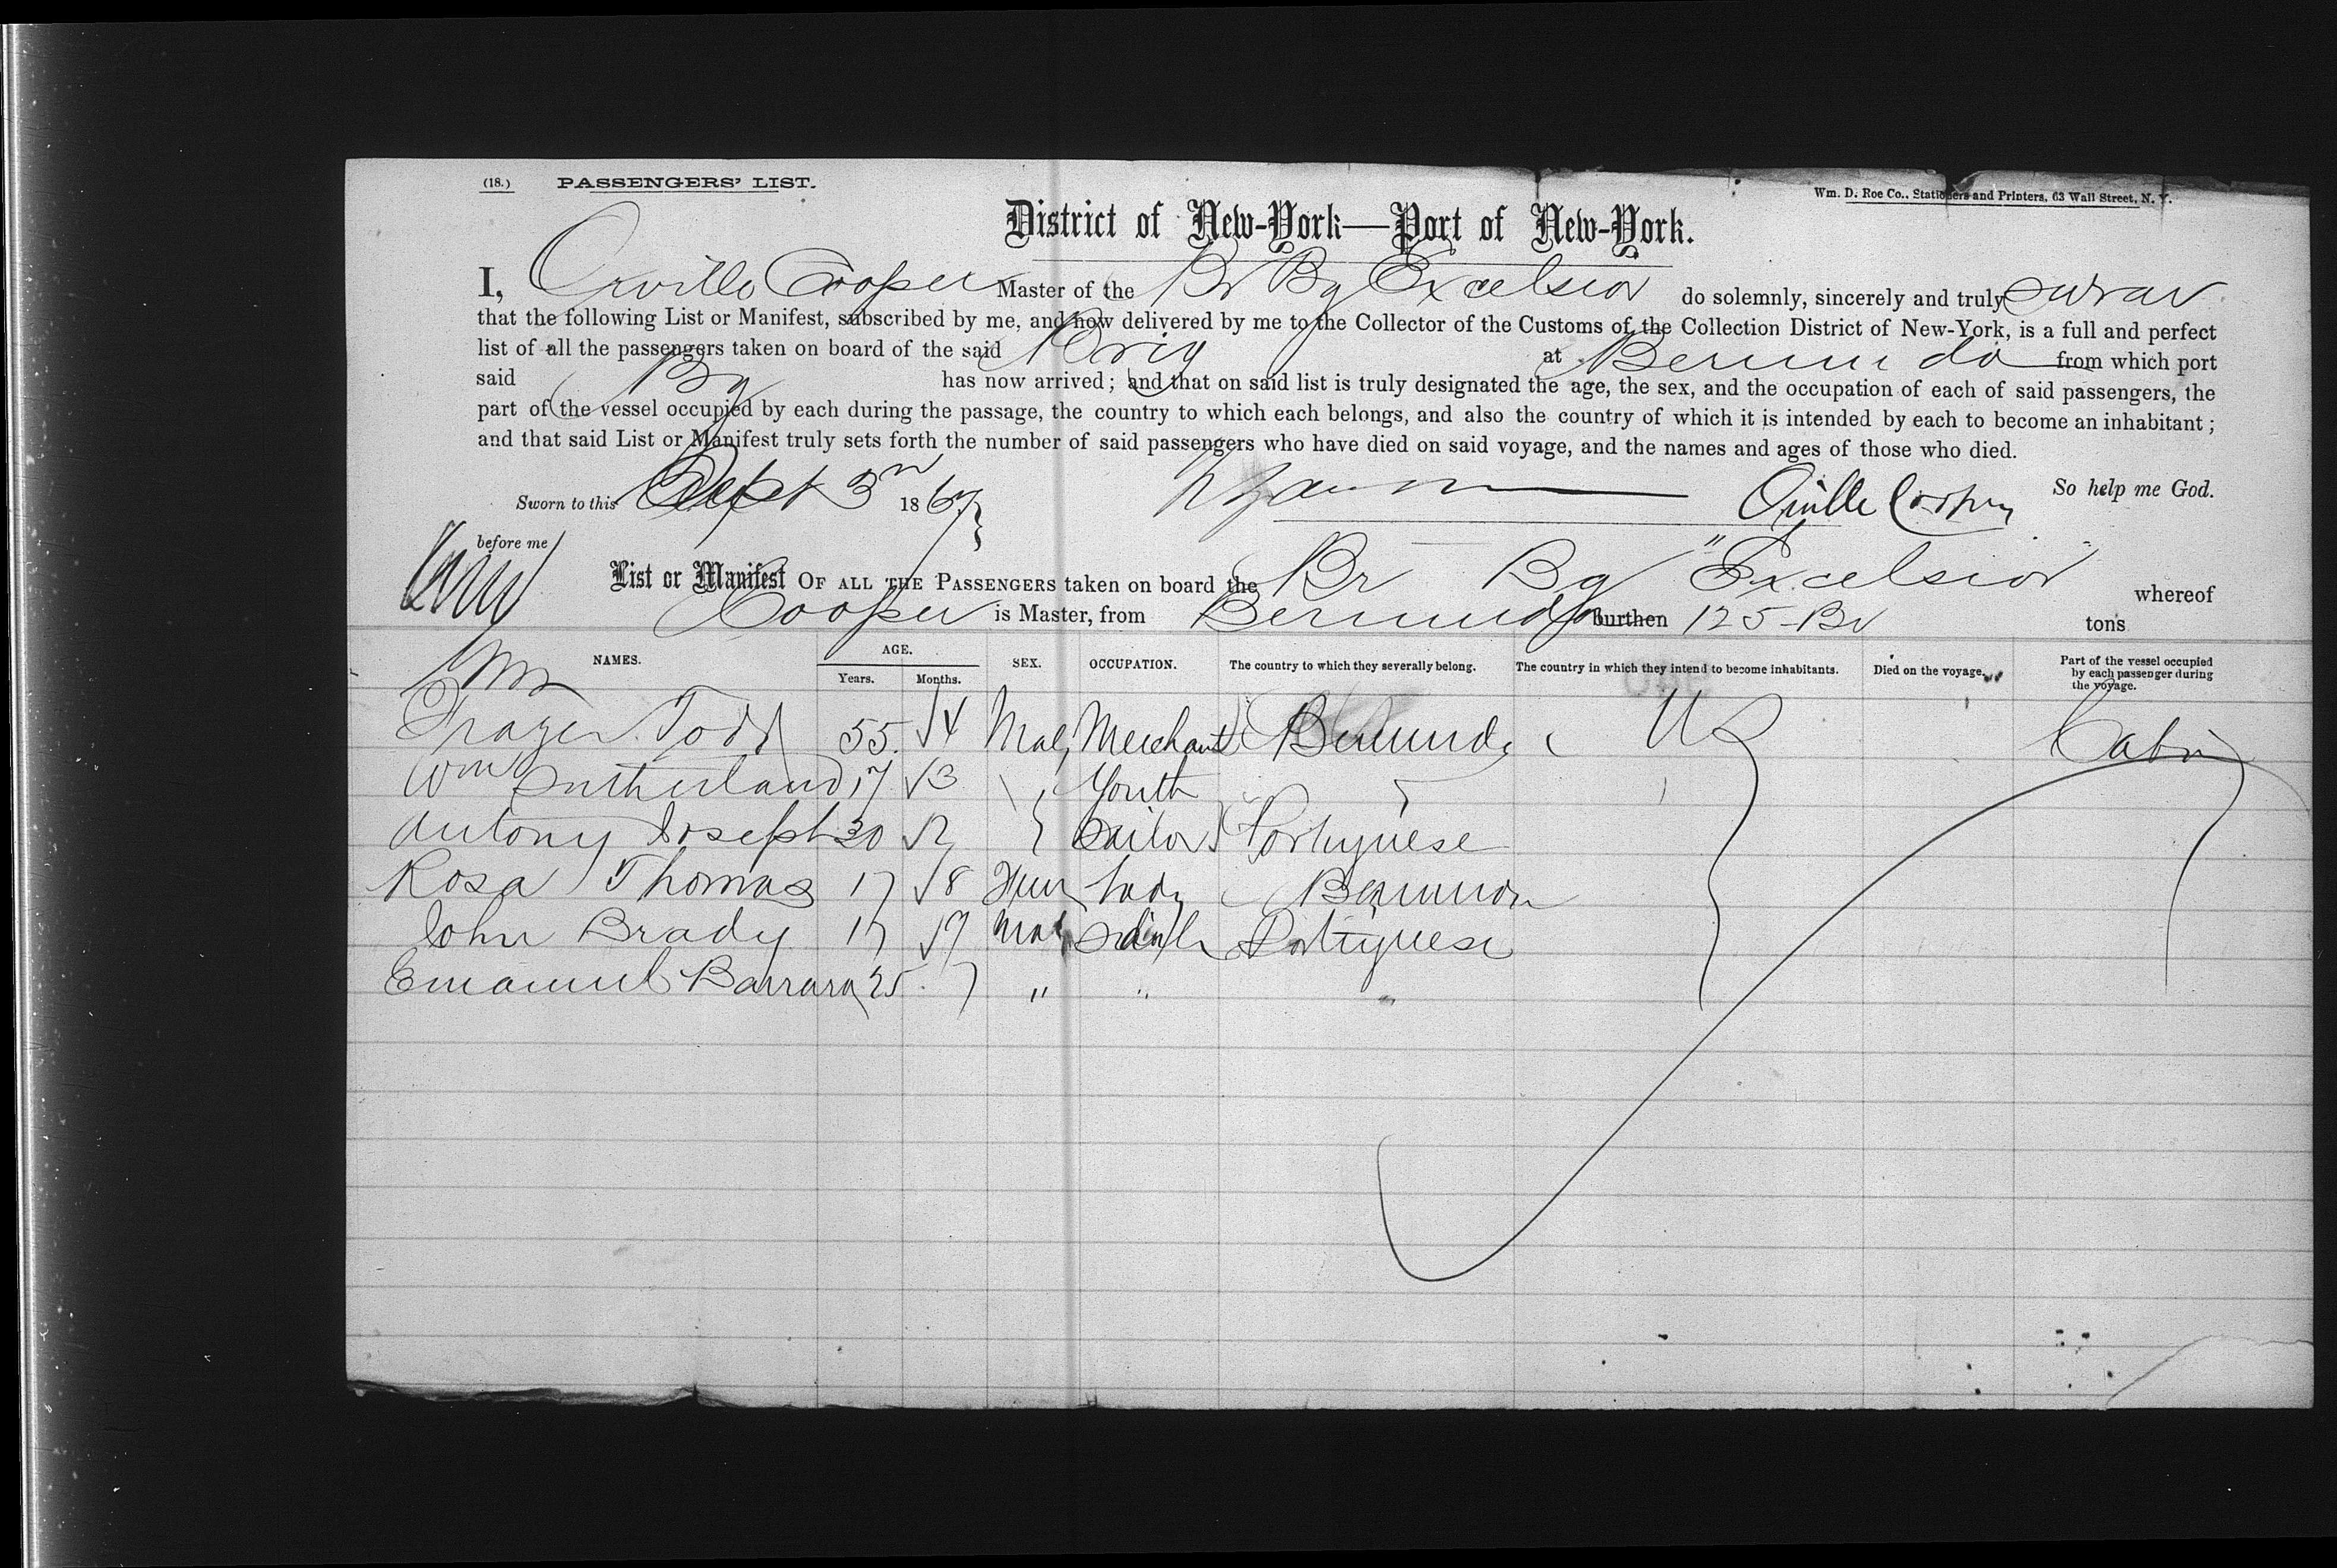 (18.) PASSENGERS' LIST.
Wm. D. Roe Co., Stationers and Printers, 63 Wall Street, N. Y.
District of New-York—Port of New-York.
I, Orville Cooper Master of the Br Bg Excelsior do solemnly, sincerely and truly swear
that the following List or Manifest, subscribed by me, and now delivered by me to the Collector of the Customs of the Collection District of New-York, is a full and perfect
list of all the passengers taken on board of the said Brig at Bermuda from which port
said Bg has now arrived; and that on said list is truly designated the age, the sex, and the occupation of each of said passengers, the
part of the vessel occupied by each during the passage, the country to which each belongs, and also the country of which it is intended by each to become an inhabitant;
and that said List or Manifest truly sets forth the number of said passengers who have died on said voyage, and the names and ages of those who died.
So help me God.
Sworn to this Sept 3 1867 Orville Cooper
before me
List or Manifest OF ALL THE PASSENGERS taken on board the Br Bg "Excelsior" whereof
Cooper is Master, from Bermuda burthen 125 Br tons
NAMES. AGE. Years. Months. SEX. OCCUPATION. The country to which they severally belong. The country in which they intend to become inhabitants. Died on the voyage. Part of the vessel occupied by each passenger during the voyage.
Frazer Todd 55 4 Male Merchant Bermuda US Cabin
Wm Sutherland 17 3 Youth
Antony Joseph 30 Sailor Portuguese
Rosa Thomas 17 8 Fem Lady Bermuda
John Brady 17 9 Male Portuguese
Emanuel Barrara 25 " " "